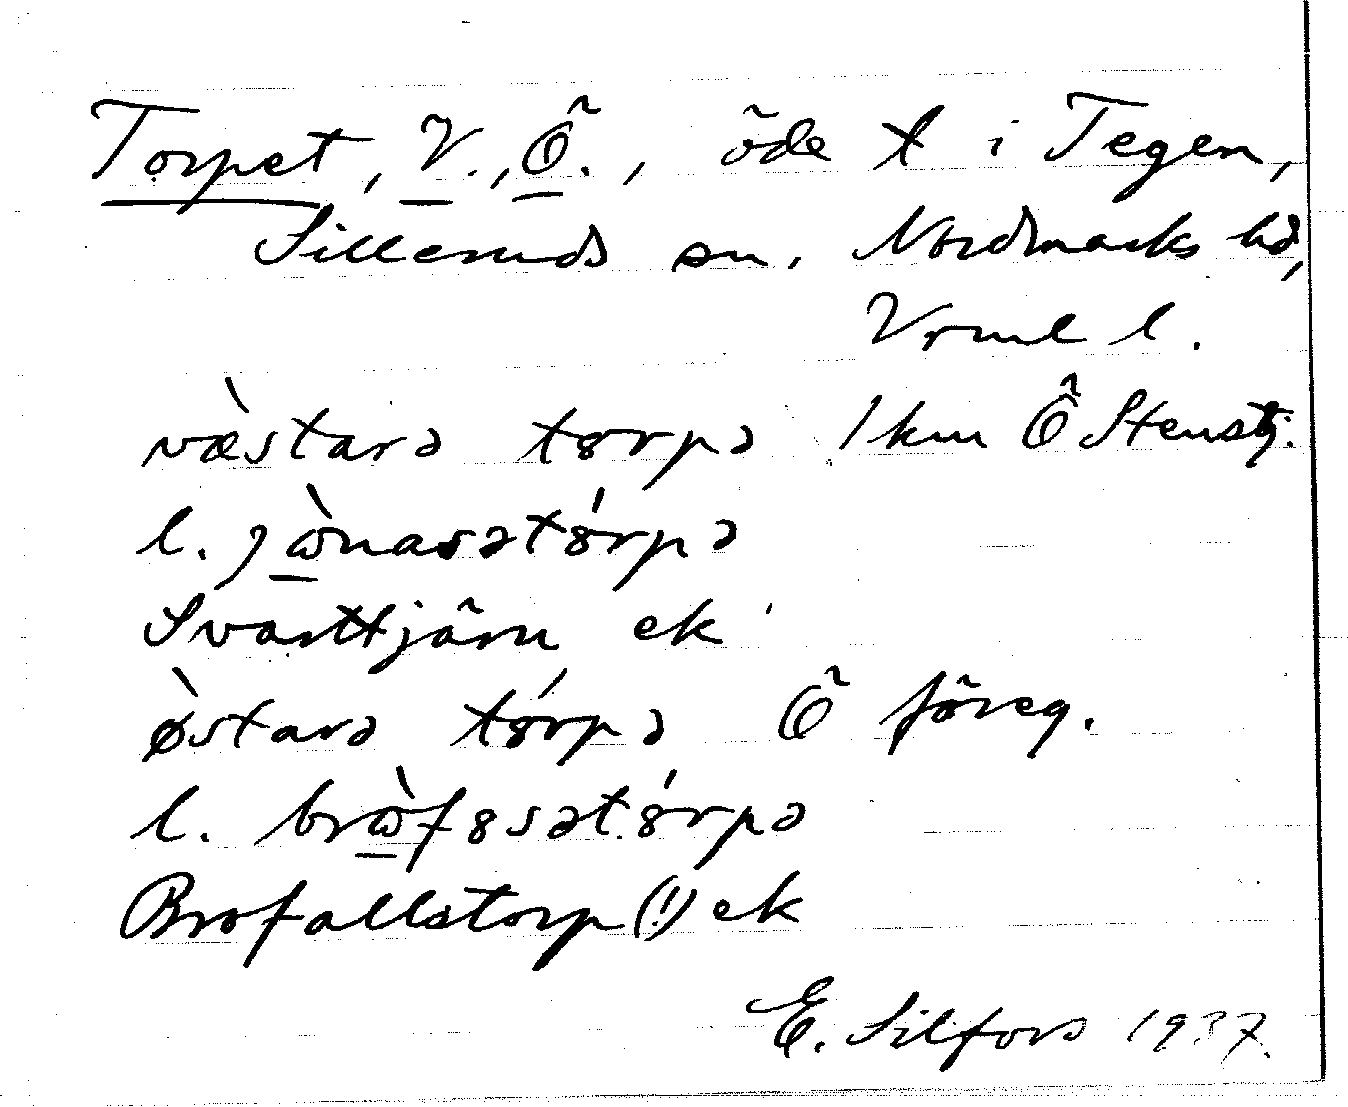 Torpet, V., Ö., öde t i Tegen,
Silleruds sn, Nordmarks hd,
Vrml l.
væ̀starə tɤrpə 1 km Ö Stenstj.
l. jɷ̀nasətɤ́rpə
Svarttjärn ek
ø̀starə tɤ́rpə Ö föreg.
l. brɷ̀fɤsətɤ́rpə
Brofallstorp (!) ek
E. Silfors 1937.